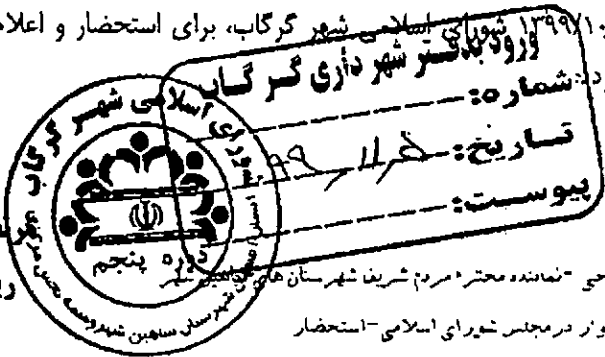 ۱۳۹۹/۱۰ شورای اسلامی شهر گرگاب، برای استحضار و اعلام
ورود بدفتر شهرداری گرگاب
شماره:
تاریخ: ۹۹/۱۱/۵
پیوست:
شورای اسلامی شهر گرگاب
دوره پنجم
نماینده محترم مردم شریف شهرستان های شاهین شهر
در مجلس شورای اسلامی-استحضار